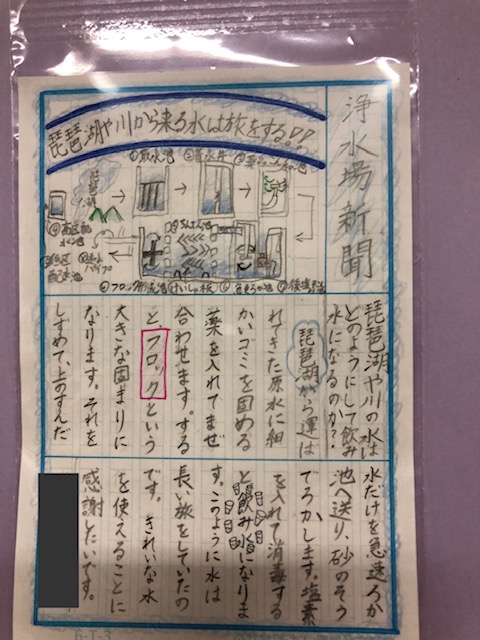 浄水場新聞
琵琶湖や川から来る水は旅をする!?
琵琶湖
①取水池
②着水井
⑥フロック形成池
けいしゃ板
琵琶湖や川の水は
どのようにして飲み
水になるのか?
琵琶湖から運ば
れてきた原水に細
かいゴミを固める
薬を入れてまぜ
合わせます。する
と、フロックという
大きな固まりに
なります。それを
しずめて、上のすんだ
水だけを急速ろか
池へ送り、砂のそう
でろかします。塩素
を入れて消毒する
と飲み水になりま
す。このように水は
長い旅をしていたの
です。きれいな水
を使えることに
感謝したいです。
6-1-3